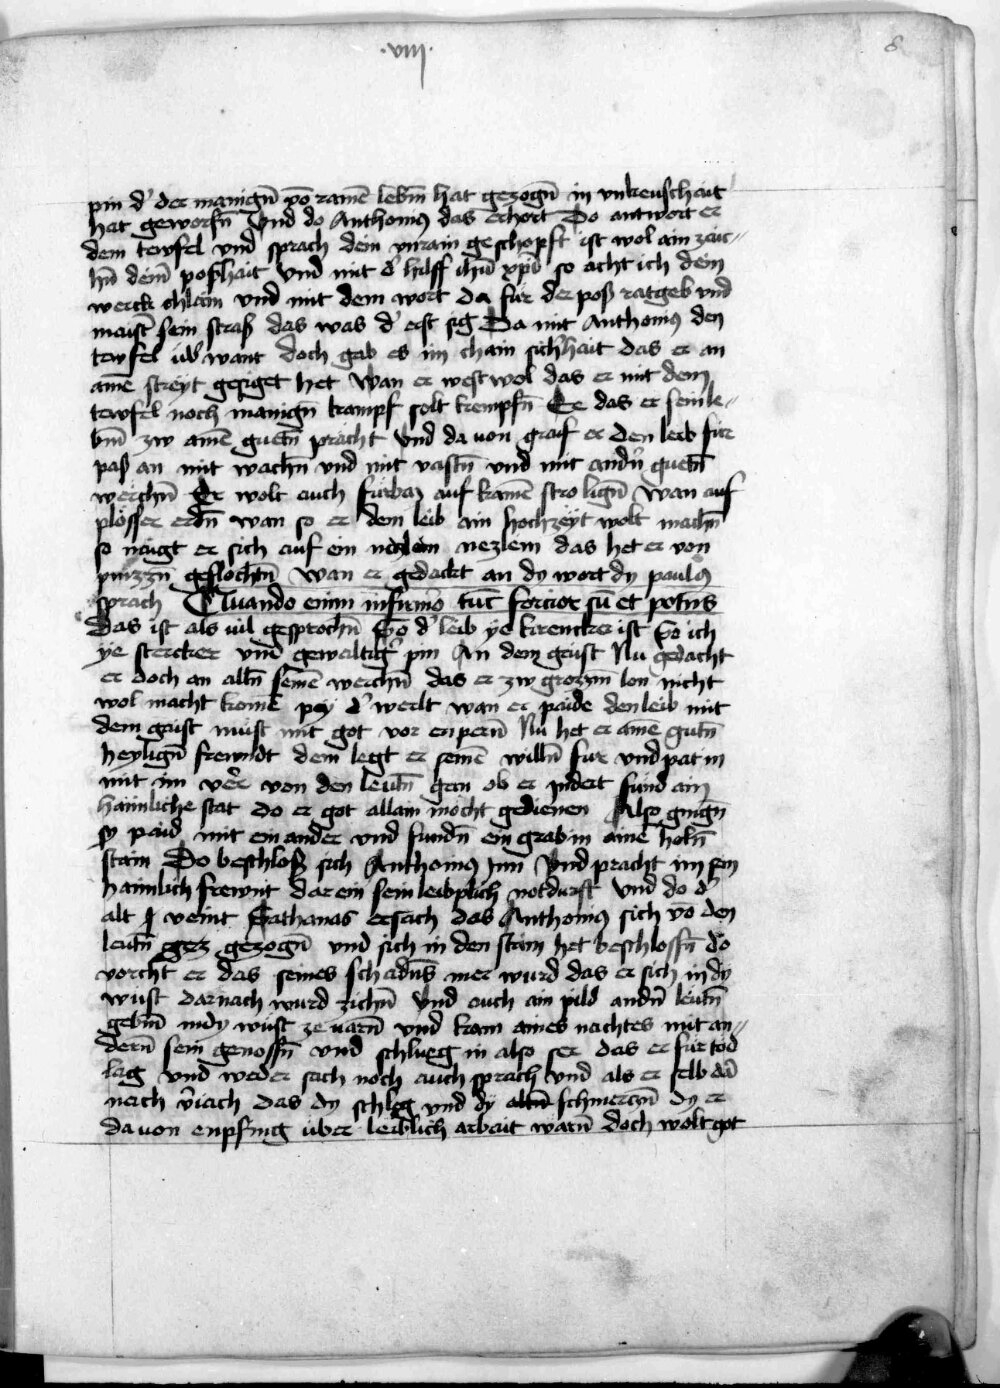 .viij.
8
pin d' der manign̄ vō ramē lebm̄ hat gezogn̄ in vnkeuschait
hat geworfn̄ Vnd do Anthoniꝯ das erhort Do antwort er
dem tewfel vnd sprach dein vnrain geschopft ist wol ain zaic-
hn̄ dein̄ poshait Vnd mit d' hilff ihū xp̄i so acht ich dein
werck chlain vnd mit dem wort da fur der poß ratgeb vnd
maist' sein straß das was d' erst sig Da mit Anthoniꝯ den
tewfel üb'want doch gab es im chain sich'hait das er an
amē streyt gesiget het Wan er west wol das er mit dem
tewfel noch manign̄ kampf solt kempfn̄ Ee das er sein le-
bm̄ zw amē guetn̄ pracht Vnd da uon graif er den leib für
paß an mit wachn̄ vnd mit vastn̄ vnd mit andn̄ guetn̄
werchn̄ Er wolt auch fürbaz auf kamē stro lign̄ Wan auf
plosser erdn̄ wan so er dem leib ain hochzeyt wolt machn̄
so naigt er sich auf ein nezlein das het er von
pinzzn̄ geflochtn̄ Wan er gedackt an dy wort dy pauluꝯ
sprach Quando enim infirmor tūc forcior sū et potēs
Das ist als uil gesprochn̄ So d' leib ye krencker ist So ich
ye stercker vnd gewaltig' pin An dem geist Nu gedacht
er doch an alln̄ seinē werchn̄ das er zw grozzm lon nicht
wol macht komē pey d' werlt wan er paide den leib mit
dem gaist muist mit got vor enpern̄ Nu het er amē gutn̄
heylign̄ frewndt dem legt er seinē willn̄ fur vnd pat in
mit im verr von den leutn̄ gen ob er indert fund ain
haimliche stat do er got allain mocht gedienen Also gingn̄
sy paid mit ein ander vnd fundn̄ ein grab in ainē holn̄
stain Do beschloß sich Anthoniꝯ inn Vnd pracht im sein
haimlich frewnt dar ein sein leibplich notdurft Vnd do d'
alt veint Sathanas ersach das Anthoniꝯ sich vō den
leutn̄ gezogn̄ vnd sich in den stain het beschlossn̄ do
vorcht er das seines schadn̄s mer wurd das er sich in dy
wüst darnach wurd zichn̄ Vnd auch ain pild andn̄ leutn̄
gebm̄ in dy wüst ze uarn̄ vnd kam aines nachtes mit an-
dern̄ sein genossn̄ vnd schlueg in also ser das er für tod
lag vnd weder sach noch auch sprach vnd als er selb dar
nach v'iach das dy schleg vnd dy schmerczn̄ dy er
da uon enpfing über leiblich arbait warn̄ doch wolt got